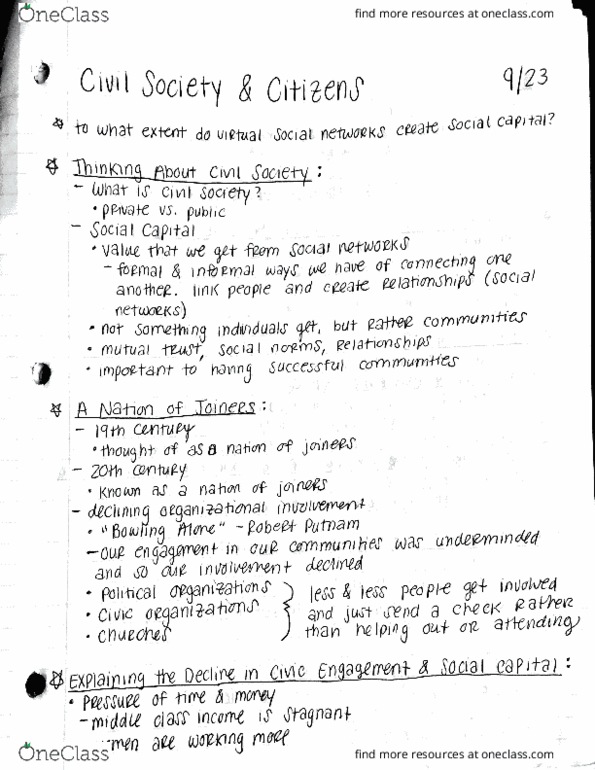 OneClass
find more resources at oneclass.com
Civil Society & Citizens
9/23
to what extent do virtual social networks create social capital?
Thinking About Civil Society:
- What is civil society?
• private vs. public
- Social Capital
• value that we get from social networks
- formal & informal ways we have of connecting one
another. link people and create relationships (social
networks)
• not something individuals get, but ratter communities
• mutual trust, social norms, relationships
• important to having successful communities
A Nation of Joiners:
- 19th century
• thought of as a nation of joiners
- 20th century
• known as a nation of joiners
- declining organizational involvement
• "Bowling Alone" - Robert Putnam
- our engagement in our communities was underminded
and so our involvement declined
• political organizations
• civic organizations
• churches
less & less people get involved
and just send a check rather
than helping out or attending
Explaining the Decline in Civic Engagement & Social Capital:
• pressure of time & money
- middle class income is stagnant
- men are working more
OneClass
find more resources at oneclass.com